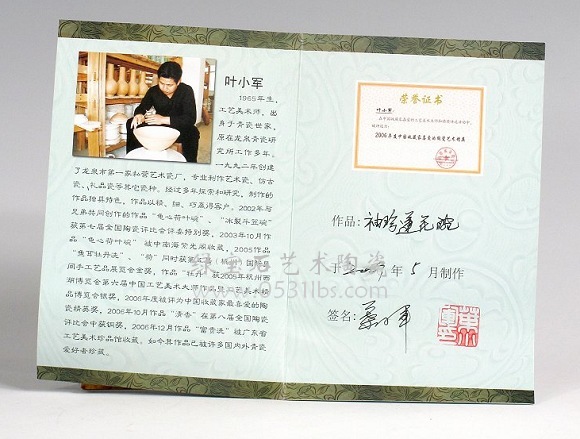 叶小军
1965年生，
工艺美术师，出
身于青瓷世家，
原在龙泉青瓷研
究所工作多年。
一九九二年创建
了龙泉市第一家私营艺术瓷厂，专业制作艺术瓷、仿古
瓷、礼品瓷等其它瓷种。经过多年探索和研究，制作的
作品独具特色，作品以精、细、巧赢得客户。2002年与
兄弟共同创作的作品“龟心荷叶碗”、“冰裂斗笠碗”
获第七届全国陶瓷评比会评委特别奖，2003年10月作
品“龟心荷叶碗”被中南海紫光阁收藏，2005作品
“鱼耳牡丹洗”、“荷”同时获第
间手工艺品展览会金奖，作品“牡丹”获2005年杭州西
湖博览会第六届中国工艺美术大师作品暨工艺美术精
品博览会银奖，2006年度被评为中国收藏家最喜爱的陶
瓷精英奖，2006年10月作品“清香”在第八届全国陶瓷
评比会中获铜奖，2006年12月作品“富贵洗”被广东省
工艺美术珍品馆收藏。如今其作品已被许多国内外青瓷
爱好者珍藏。
荣誉证书
叶小军：
2006年度中国收藏家喜爱的陶瓷艺术精英
作品：袖珍莲花碗
于2007年5月制作
签名：叶小军
绿宝石艺术陶瓷
0531lbs.com